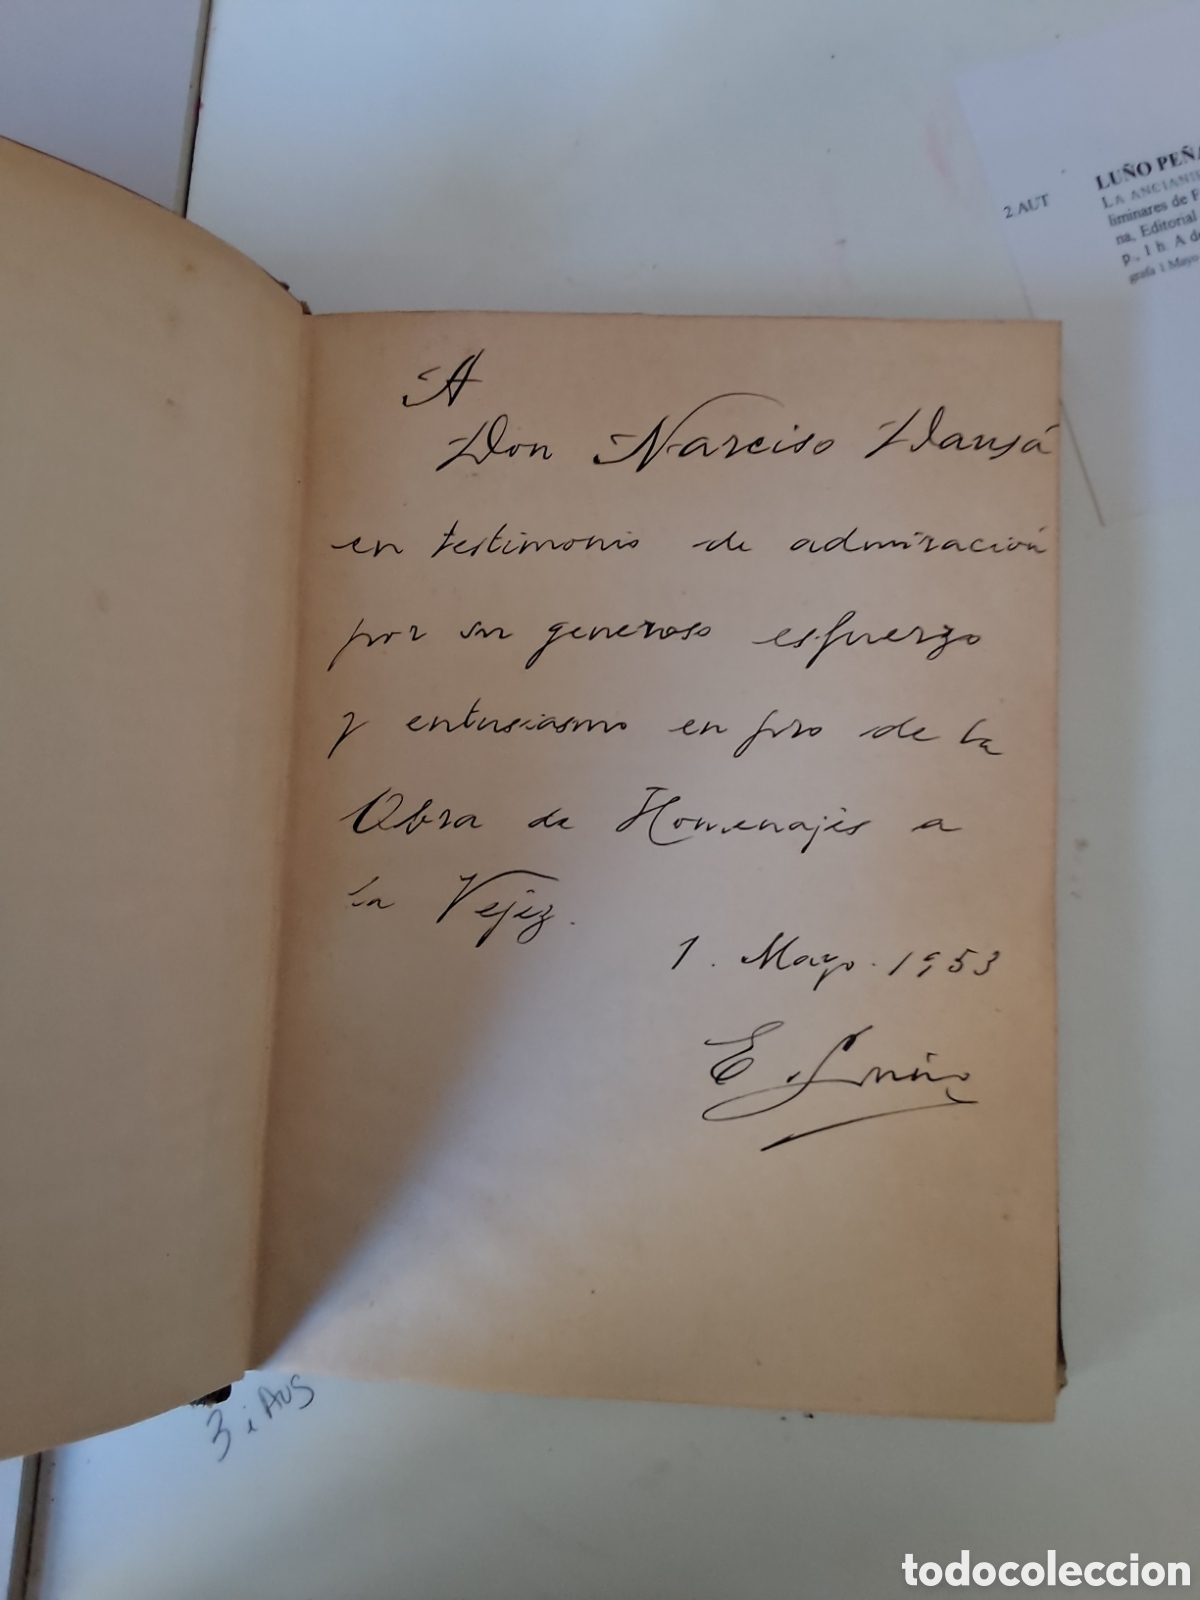 A
Don Narciso
en testimonio de admiración
por su generoso esfuerzo
y entusiasmo en pro de la
Obra de Homenajes a
la Vejez.
1. Mayo. 1953
E. Luño
2 AUT
LUÑO PEÑA
LA ANCIANI
liminares de F
na, Editorial
p., 1 h. A de
grafa 1 Mayo
3 i AUS
todocoleccion